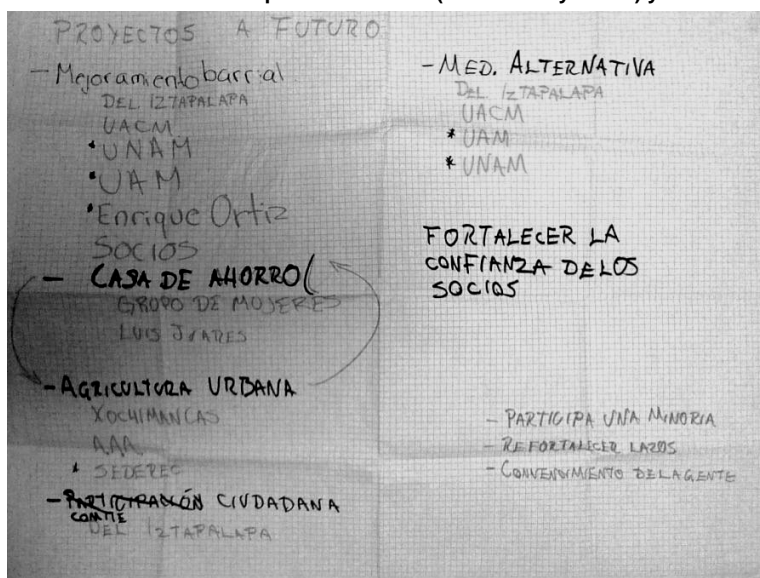 PROYECTOS A FUTURO
- Mejoramiento barrial
DEL IZTAPALAPA
UACM
* UNAM
* UAM
* Enrique Ortiz
SOCIOS
- CASA DE AHORRO
GRUPO DE MUJERES
LUIS JUARES
- AGRICULTURA URBANA
XOCHIMANCAS
AAA
* SEDEREC
- PARTICIPACIÓN CIUDADANA
COMITE
DEL IZTAPALAPA
- MED. ALTERNATIVA
DEL IZTAPALAPA
UACM
* UAM
* UNAM
FORTALECER LA
CONFIANZA DE LOS
SOCIOS
- PARTICIPA UNA MINORIA
- REFORTALECER LAZOS
- CONVENCIMIENTO DE LA GENTE